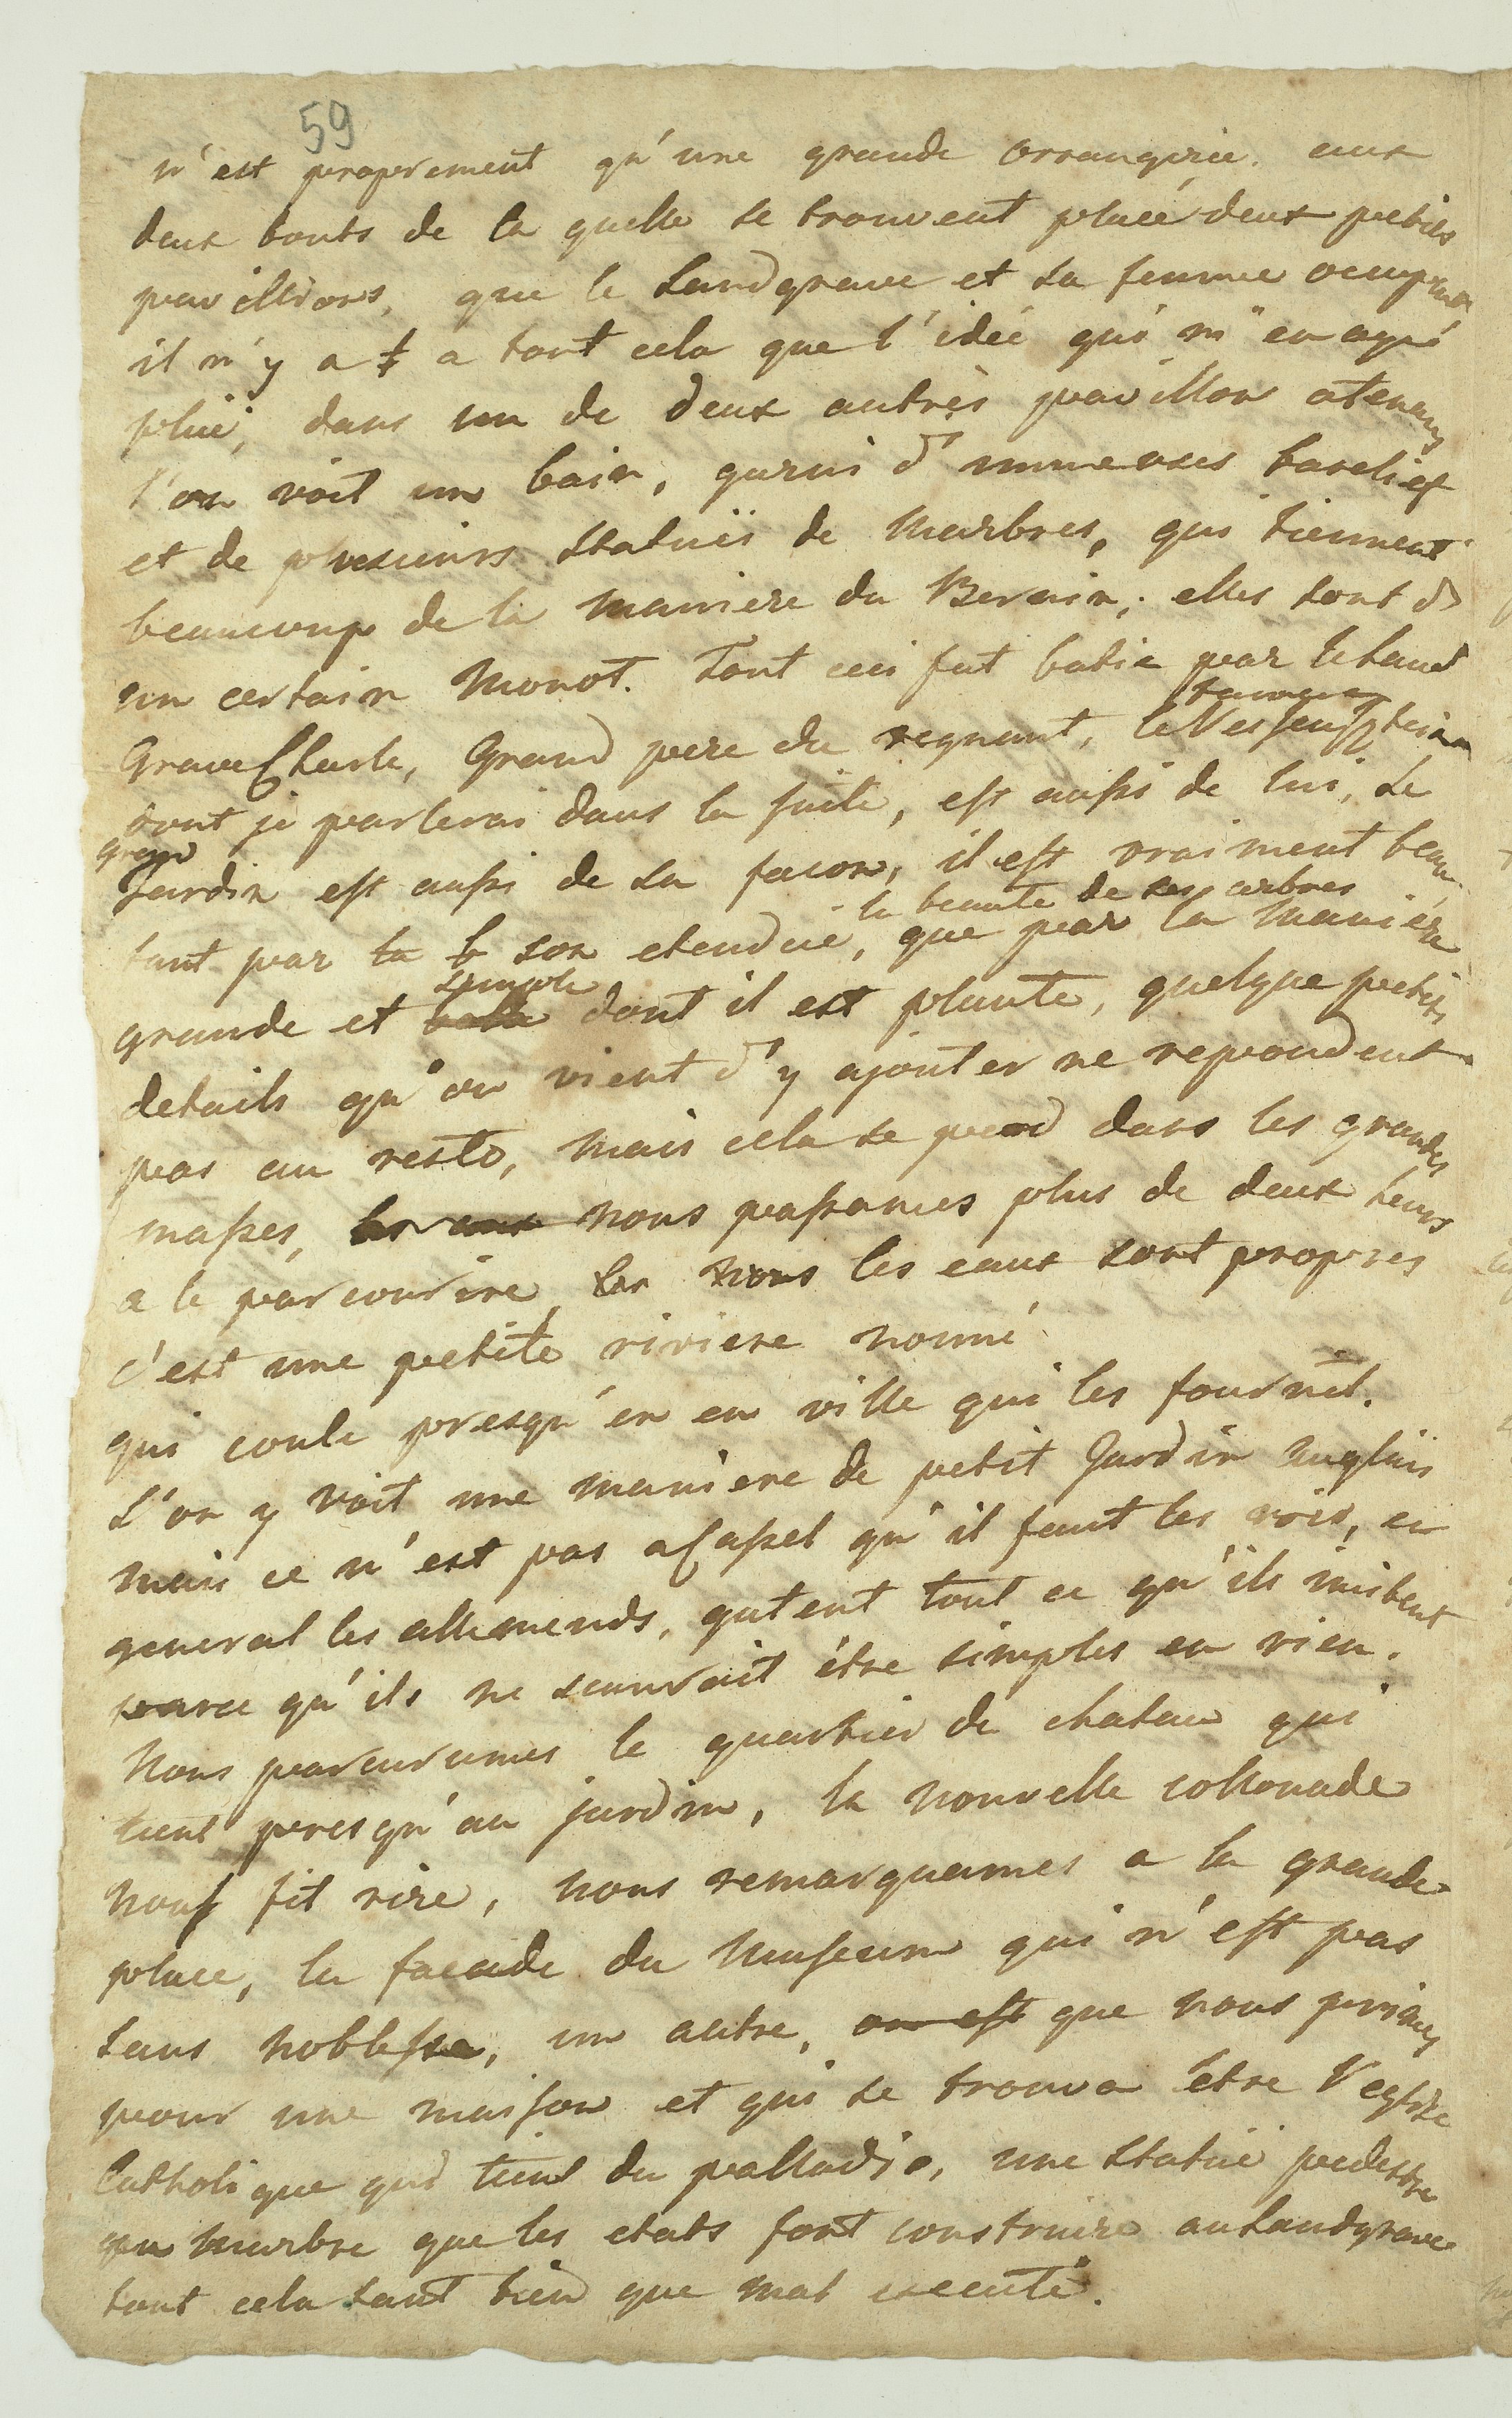 59
n'est proprement qu'une grande orrangerie. aux
deux bouts de la quelle se trouvent placé deux petits
pavillions, que le Landgrave et sa femme occupent
il n'y a t a tout cela que l'idée qui m'en aye
plüe, dans un de deux autres pavillon atenens
l'on voit un bain, garni d'immenses baselief
et de plusieurs statuës de Marbres, qui tiennent
beaucoup de la maniere du Bernin; elles sont d
un certain Monot. Tout ceci fut batie par le Land
Grave Charle, Grand pere du regnant, le Vessenstein
fameux
dont je parlerai dans la suite, est aussi de lui, Le
grand
Jardin est aussi de sa facon, il est vraiment beau
la beaute de ses arbres
tant par la b son etendue, que par la maniére
simple
grande et belle dont il est plante, quelque petits
details qu'on vient d'y ajouter ne repondent
pas au reste, mais cela se perd dans les grandes
masses, nous passames plus de deux heurs
a le parcourire les nous les eaux sont propres
c'est une petite riviere nomé
qui coule presqu'en en ville qui les fournit.
L'on y voit une maniere de petit Jardin anglais
mais ce n'est pas a Cassel qu'il faut les voir, en
general les allemends, gatent tout ce qu'ils imitent
parce qu'ils ne scauroit être simples en rien.
Nous parcurumes le quartier de chatau qui
tient presqu'au jardin, la nouvelle collonade
nous fit rire, nous remarquames a la grande
place, la facade du Museum qui n'est pas
sans noblesse, un autre, on est que nous primes
pour une maison et qui se trouva être l'eglise
Catholique qui tient du palladio, une statuë pedestre
en marbre que les etats font construire au Landgrave
tout cela tant bien que mal executé.